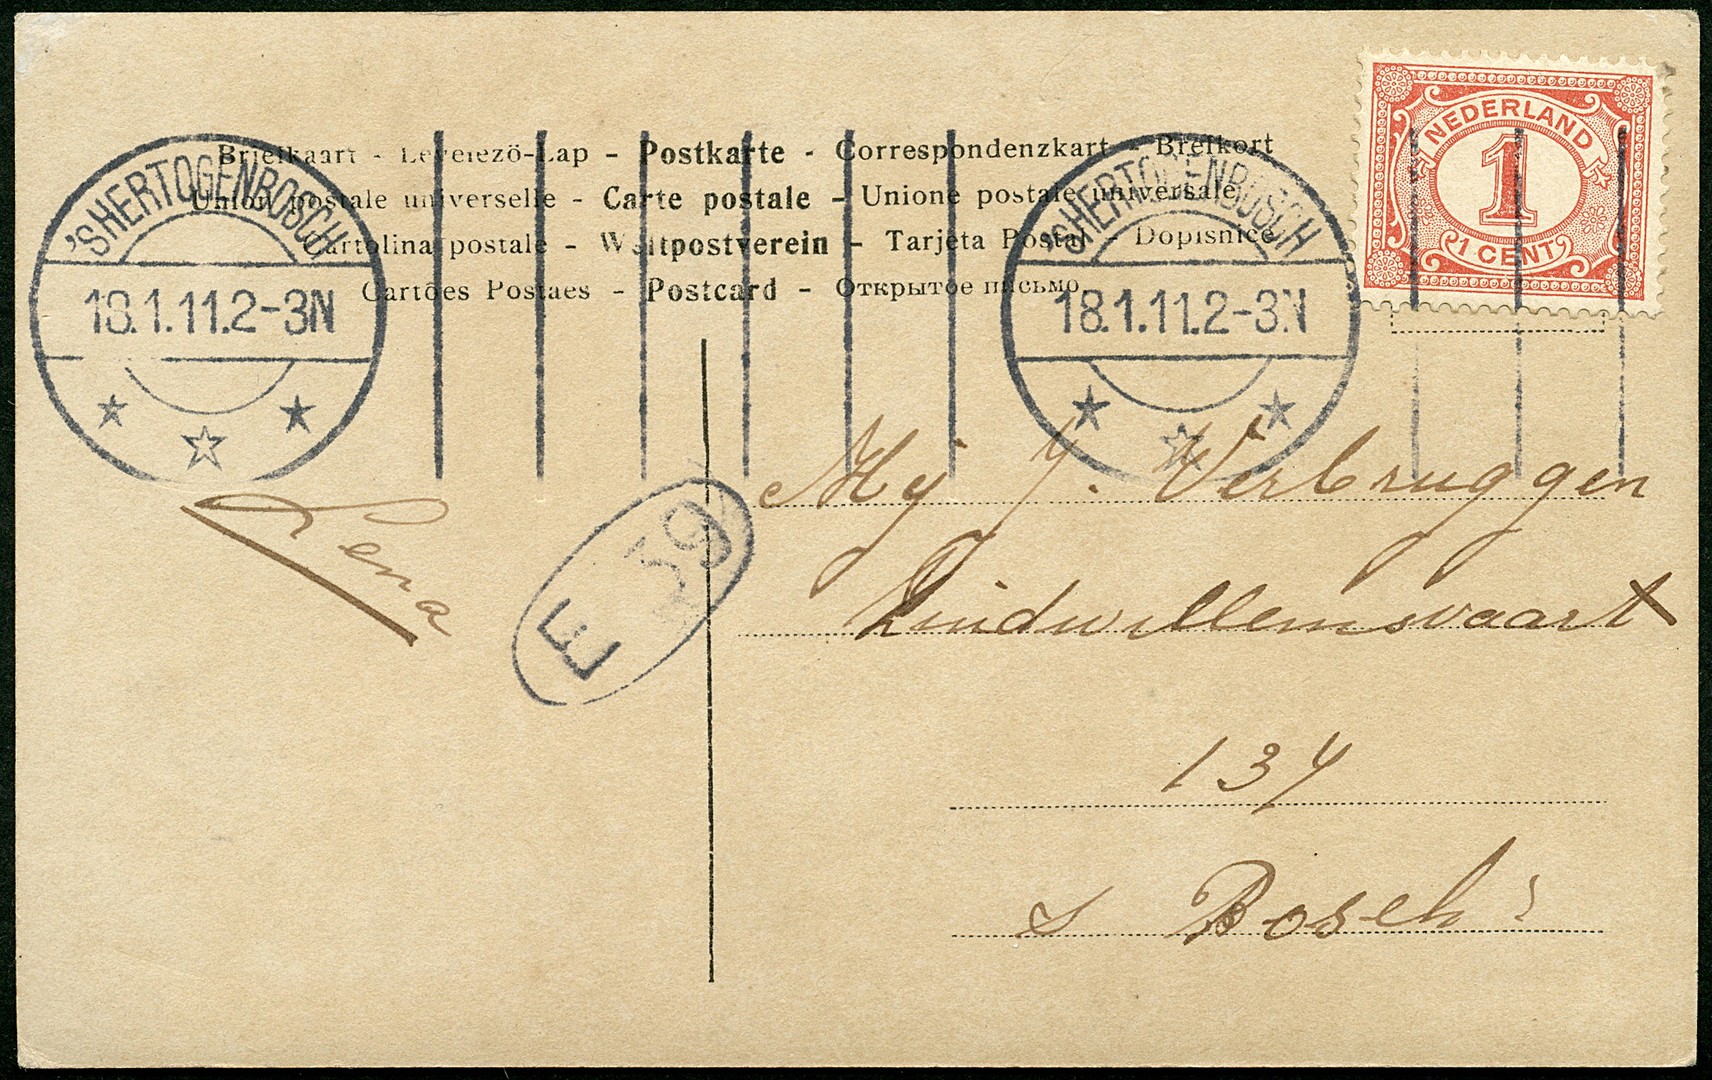 Briefkaart - Levelező-Lap - Postkarte - Correspondenzkart - Brefkort
Union postale universelle - Carte postale - Unione postale universale
Cartolina postale - Weltpostverein - Tarjeta Postal - Dopisnice
Cartões Postaes - Postcard - Открытое письмо.
'SHERTOGENBOSCH
18.1.11.2-3N
'SHERTOGENBOSCH
18.1.11.2-3N
NEDERLAND
1
1 CENT
Lena
E 39
Mej J. Verbruggen
Zuidwillemsvaart
137
s Bosch